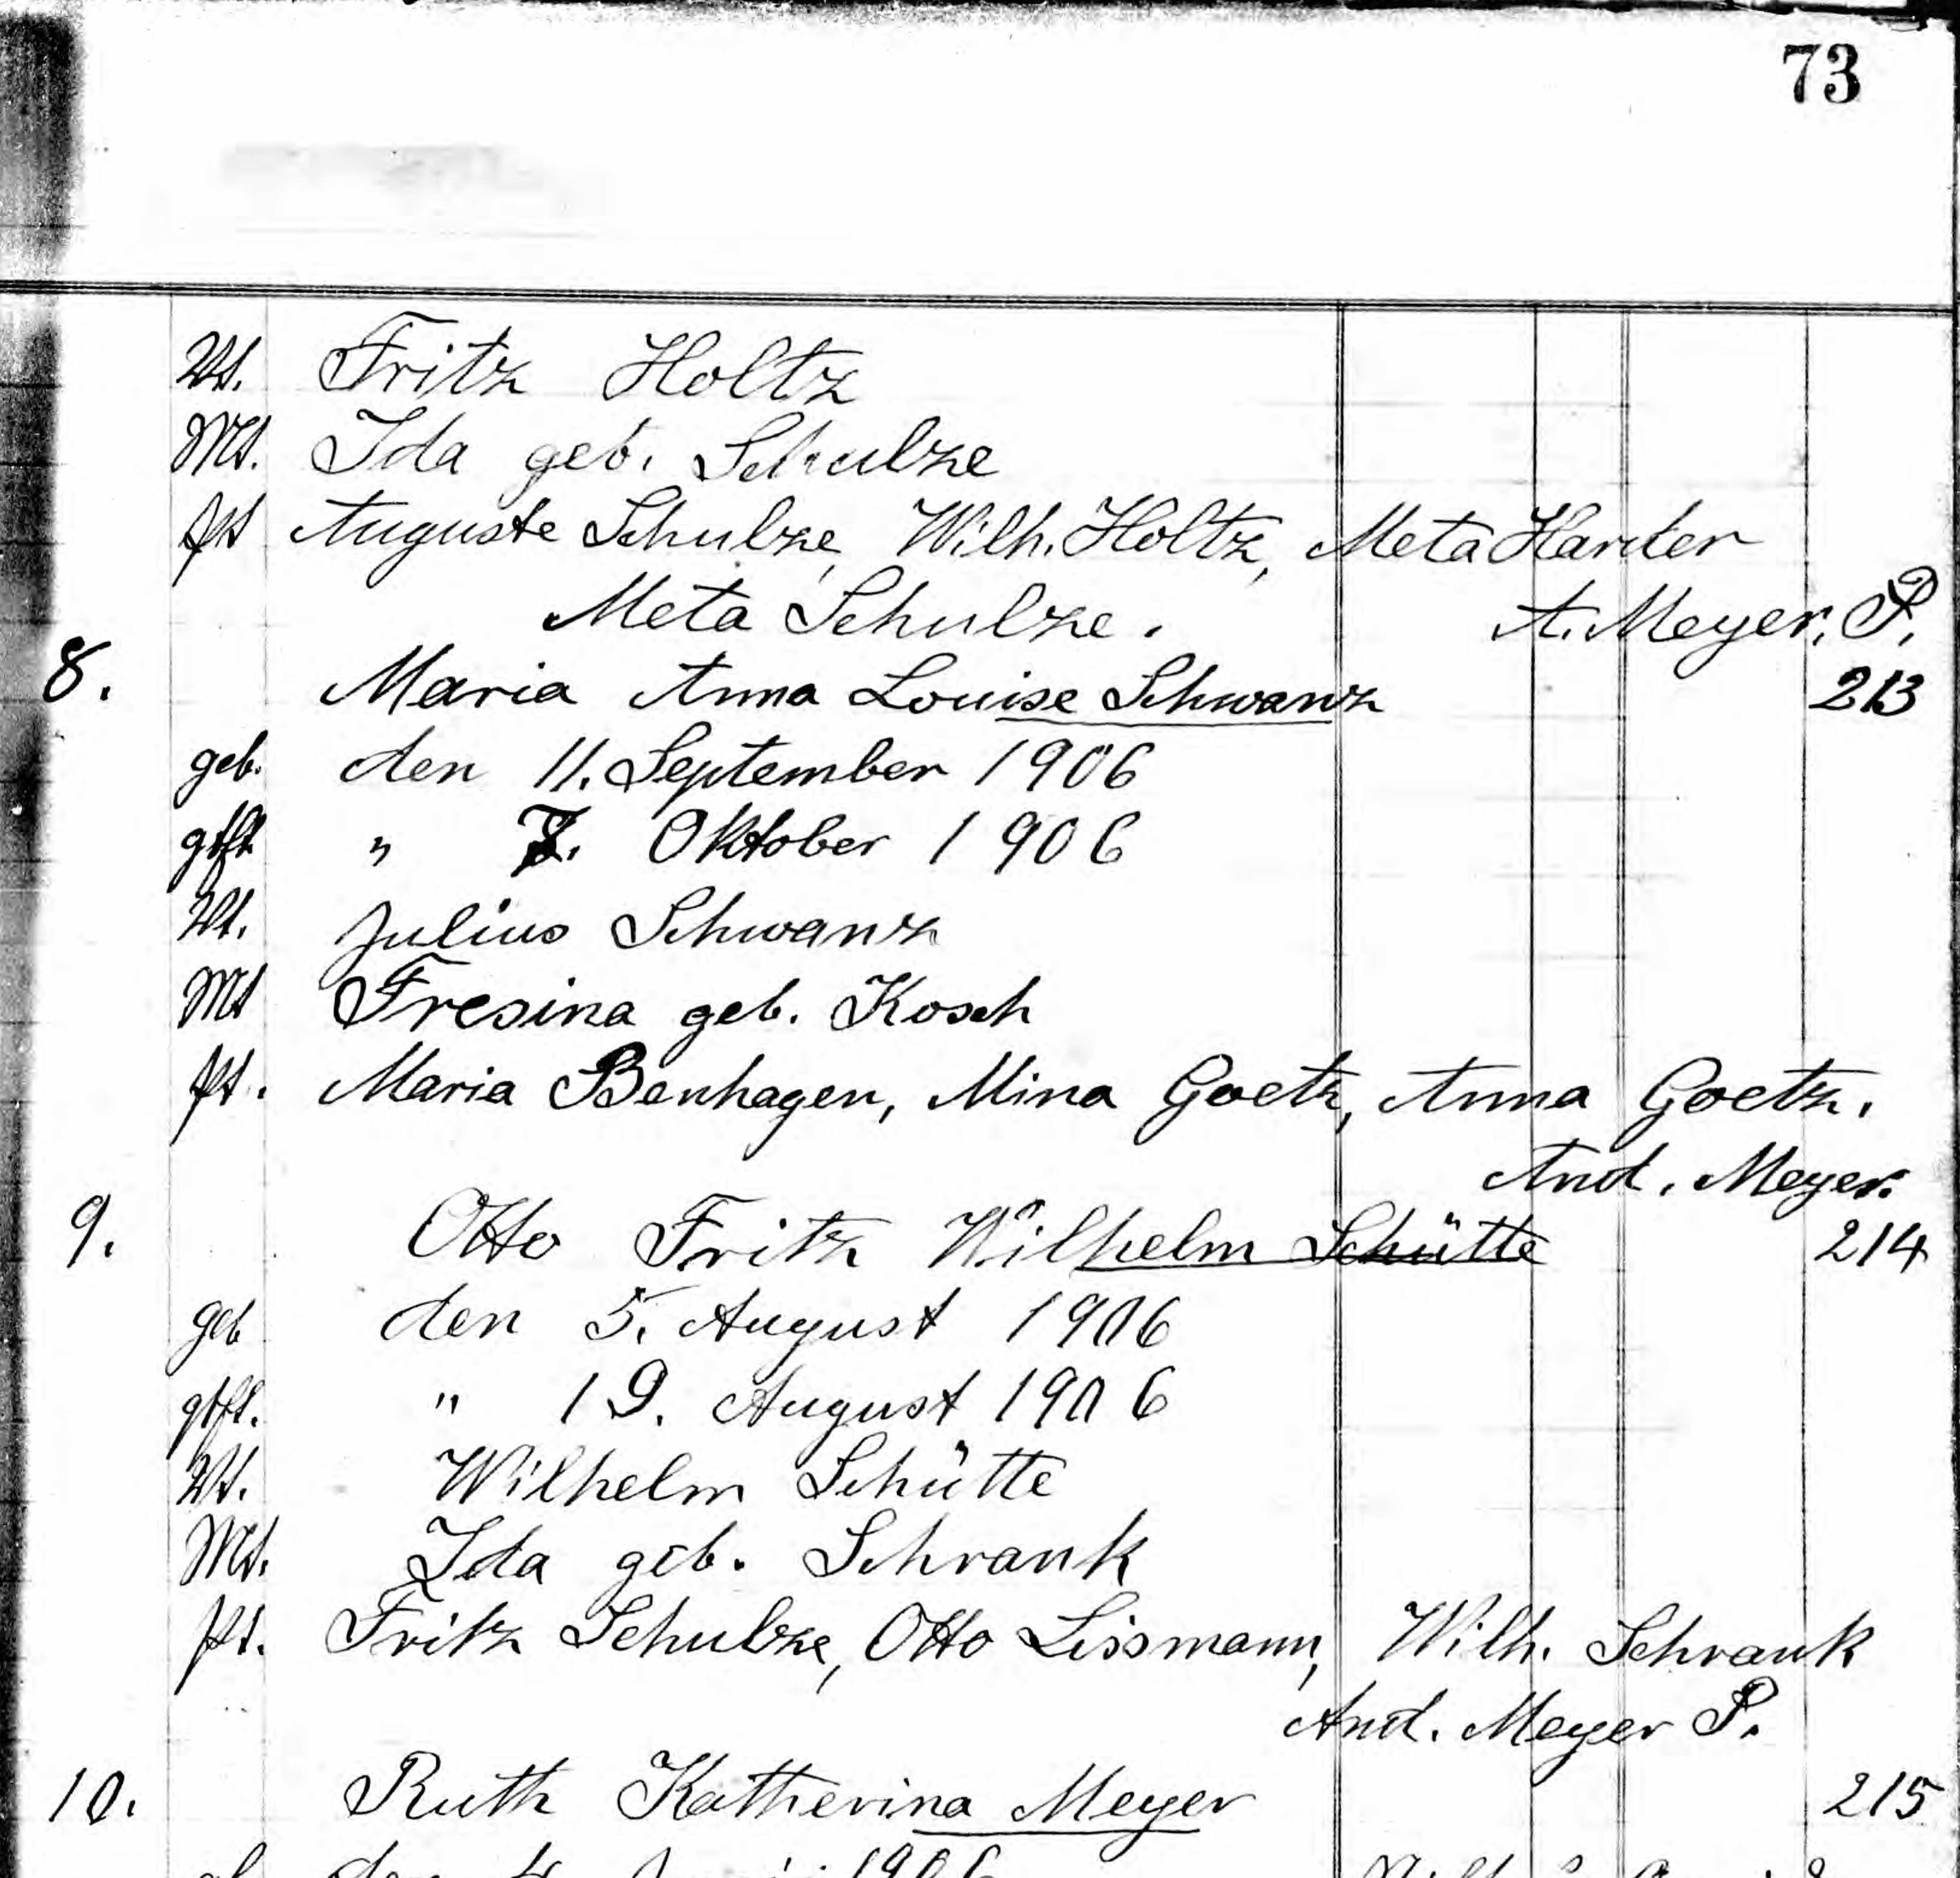 73
Vt. Fritz Holtz
Mt. Ida geb. Schulze
pt Auguste Schulze, Wilh. Holtz, Meta Harder
Meta Schulze. A. Meyer, P.
8. Maria Anna Louise Schwanz 213
geb. den 11. September 1906
gtft. " 7. Oktober 1906
Vt. Julius Schwanz
Mt Fresina geb. Kosch
pt. Maria Benhagen, Mina Goetz, Anna Goetz.
And. Meyer.
9. Otto Fritz Wilhelm Schütte 214
geb den 5. August 1906
gtft. " 19. August 1906
Vt. Wilhelm Schütte
Mt. Ida geb. Schrank
pt. Fritz Schulze, Otto Lissmann, Wilh. Schrank
And. Meyer P.
10. Ruth Katherina Meyer 215